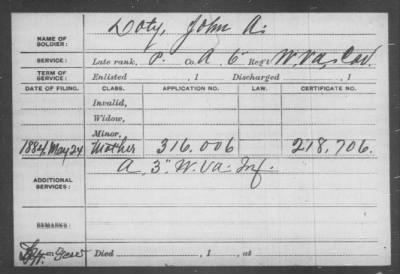 NAME OF SOLDIER: Doty, John A.
SERVICE: Late rank, P. Co. A, 6" Reg't W. Va. Cav.
TERM OF SERVICE: Enlisted , 1 Discharged , 1
DATE OF FILING. CLASS. APPLICATION NO. LAW. CERTIFICATE NO.
Invalid,
Widow,
Minor,
1884, May 24 Mother 316.006 218,706.
ADDITIONAL SERVICES: A, 3" W. Va. Inf.
REMARKS:
Died , 1 , at